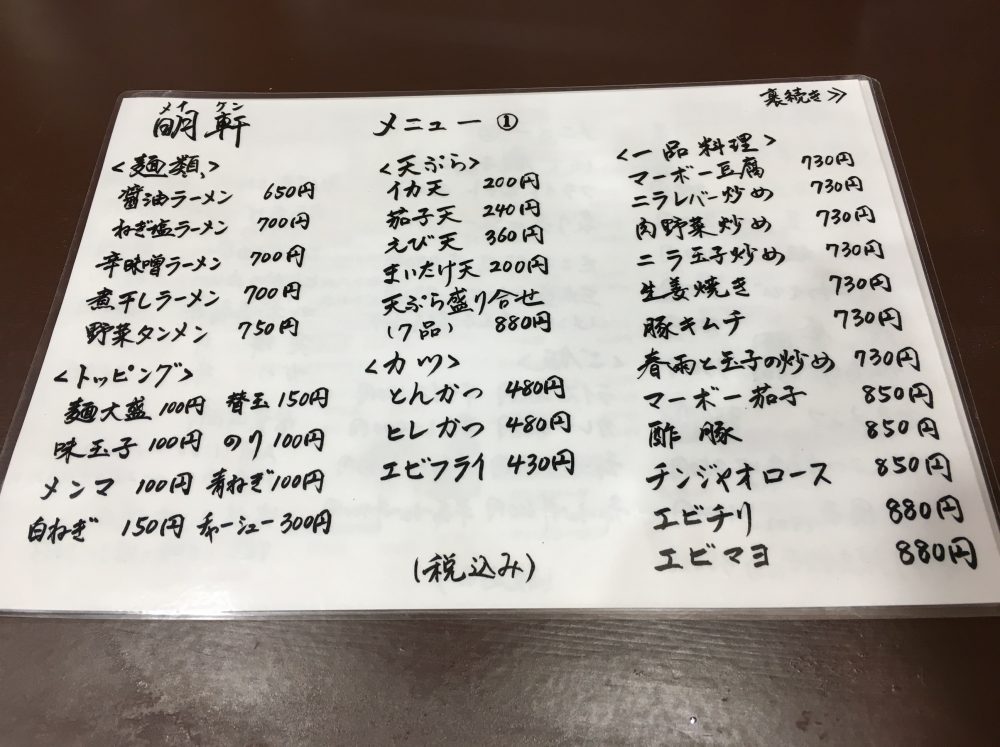 メイ ケン
萌軒
メニュー ①
裏続き≫
<麺類>
醤油ラーメン 650円
ねぎ塩ラーメン 700円
辛味噌ラーメン 700円
煮干しラーメン 700円
野菜タンメン 750円
<トッピング>
麺大盛 100円 替玉 150円
味玉子 100円 のり 100円
メンマ 100円 青ねぎ 100円
白ねぎ 150円 チャーシュー 300円
<天ぷら>
イカ天 200円
茄子天 240円
えび天 360円
まいたけ天 200円
天ぷら盛り合せ
(7品) 880円
<カツ>
とんかつ 480円
ヒレかつ 480円
エビフライ 430円
(税込み)
<一品料理>
マーボー豆腐 730円
ニラレバー炒め 730円
肉野菜炒め 730円
ニラ玉子炒め 730円
生姜焼き 730円
豚キムチ 730円
春雨と玉子の炒め 730円
マーボー茄子 850円
酢豚 850円
チンジャオロース 850円
エビチリ 880円
エビマヨ 880円